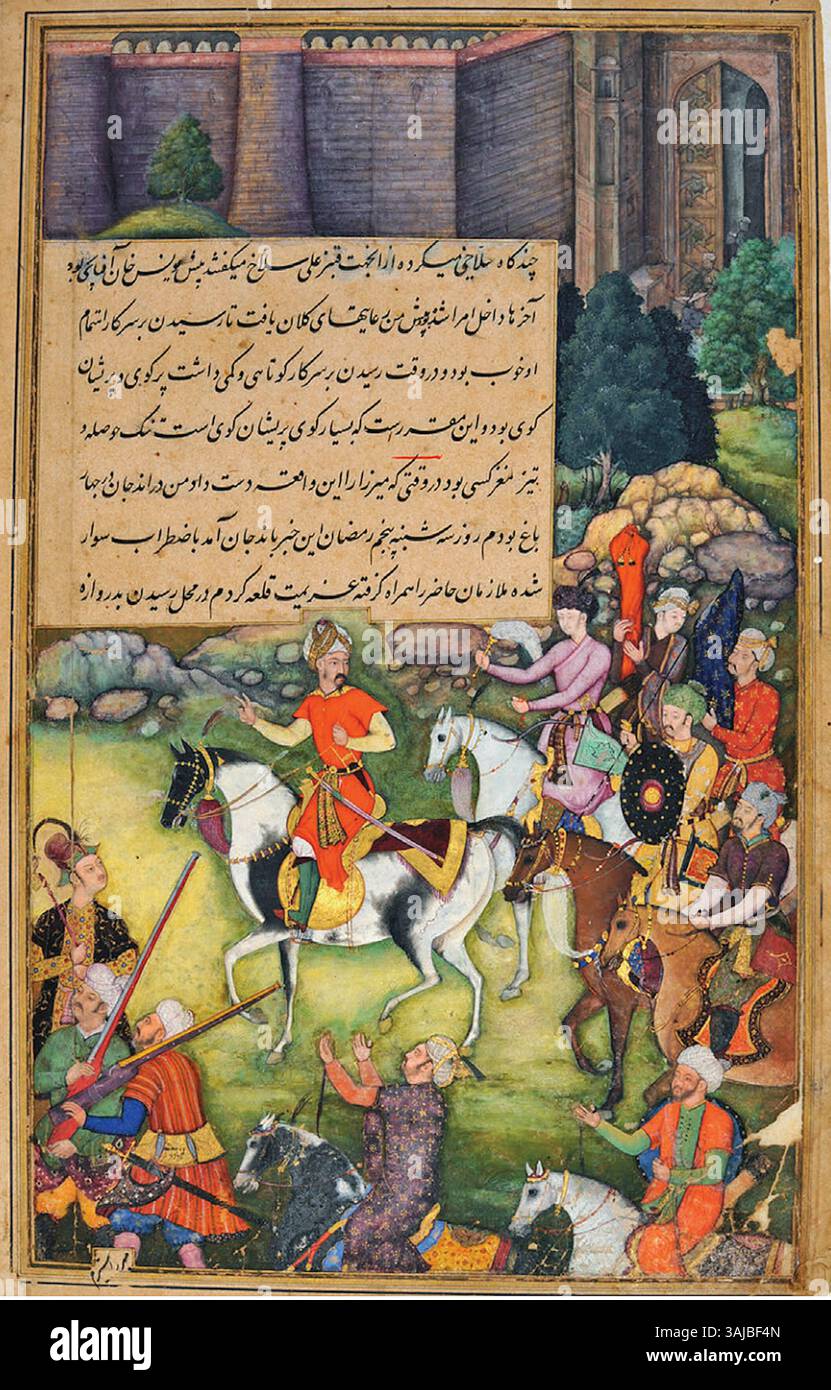 چند گاه سلاخی میکرده از انجهت قنبر علی سلاخ میکفتند پیش یونس خان آفتابچی بود
آخرها داخل امرا شد پیش من رعایتهای کلان یافت تا رسیدن بر سر کار اهتمام
او خوب بود و در وقت رسیدن بر سر کار کوتاهی و کمی داشت پر کوی و پریشان
کوی بود و این مقررست که بسیار کوی پریشان کوی است تنک حوصله و
تیز مغز کسی بود در وقتی که میرزا را این واقعه دست داد من در اندجان در چهار
باغ بودم روز سه شنبه پنجم رمضان این خبر باندجان آمد باضطراب سوار
شده ملازمان حاضر را همراه کرفته عزیمت قلعه کردم در محل رسیدن بدروازه
a
alamy
Image ID: 3AJBF4N
www.alamy.com